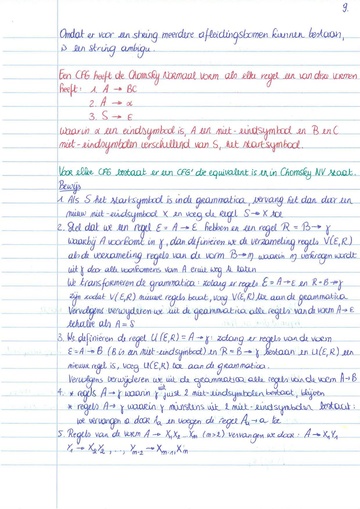 9.
Omdat er voor een string meerdere afleidingsbomen kunnen bestaan,
is een string ambigu.
Een CFG heeft de Chomsky Normaal vorm als elke regel een van deze vormen
heeft: 1. A → BC
2. A → α
3. S → ε
waarin α een eindsymbool is, A een niet-eindsymbool en B en C
niet-eindsymbolen verschillend van S, het startsymbool.
Voor elke CFG bestaat er een CFG' die equivalent is en in Chomsky NV staat.
Bewijs
1. Als S het startsymbool is in de grammatica, vervang het dan door een
nieuw niet-eindsymbool X en voeg de regel S → X toe
2. Stel dat we een regel E = A → ε hebben en een regel R = B → γ
waarbij A voorkomt in γ, dan definiëren we de verzameling regels V(E,R)
als de verzameling regels van de vorm B → η waarin η verkregen wordt
uit γ door alle voorkomens van A eruit weg te laten
We transformeren de grammatica: zolang er regels E = A → ε en R = B → γ
zijn zodat V(E,R) nieuwe regels bevat, voeg V(E,R) toe aan de grammatica
Vervolgens verwijderen we uit de grammatica alle regels van de vorm A → ε
behalve als A = S
3. We definiëren de regel U(E,R) = A → γ: zolang er regels van de vorm
E = A → B (B is een niet-eindsymbool) en R = B → γ bestaan en U(E,R) een
nieuwe regel is, voeg U(E,R) toe aan de grammatica.
Vervolgens verwijderen we uit de grammatica alle regels van de vorm A → B
4. * regels A → γ waarin γ uit juist 2 niet-eindsymbolen bestaat, blijven
* regels A → γ waarin γ minstens uit 2 niet-eindsymbolen bestaat:
we vervangen a door Aₐ en voegen de regel Aₐ → a toe
5. Regels van de vorm A → X₁X₂...Xₘ (m>2) vervangen we door: A → X₁Y₁
Y₁ → X₂Y₂, ..., Yₘ₋₂ → Xₘ₋₁Xₘ